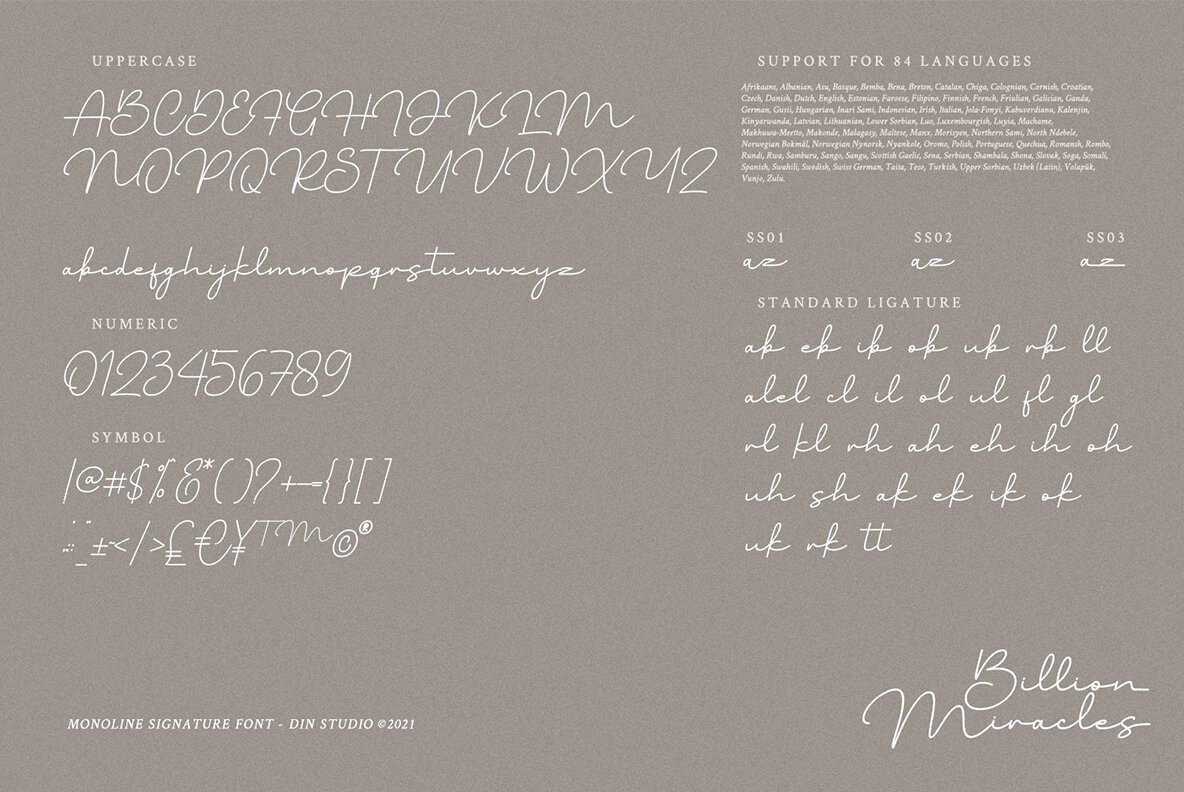 UPPERCASE
ABCDEFGHIJKLM
NOPQRSTUVWXYZ
abcdefghijklmnopqrstuvwxyz
NUMERIC
0123456789
SYMBOL
|@#$%&*()?+–={}[]
±~</>£€¥™©®
SUPPORT FOR 84 LANGUAGES
Afrikaans, Albanian, Asu, Basque, Bemba, Bena, Breton, Catalan, Chiga, Colognian, Cornish, Croatian,
Czech, Danish, Dutch, English, Estonian, Faroese, Filipino, Finnish, French, Friulian, Galician, Ganda,
German, Gusii, Hungarian, Inari Sami, Indonesian, Irish, Italian, Jola-Fonyi, Kabuverdianu, Kalenjin,
Kinyarwanda, Latvian, Lithuanian, Lower Sorbian, Luo, Luxembourgish, Luyia, Machame,
Makhuwa-Meetto, Makonde, Malagasy, Maltese, Manx, Morisyen, Northern Sami, North Ndebele,
Norwegian Bokmål, Norwegian Nynorsk, Nyankole, Oromo, Polish, Portuguese, Quechua, Romansh, Rombo,
Rundi, Rwa, Samburu, Sango, Sangu, Scottish Garlic, Sena, Serbian, Shambala, Shona, Slovak, Soga, Somali,
Spanish, Swahili, Swedish, Swiss German, Taita, Teso, Turkish, Upper Sorbian, Uzbek (Latin), Volapük,
Vunjo, Zulu.
SS01 SS02 SS03
az az az
STANDARD LIGATURE
ab eb ib ob ub rb ll
alel cl il ol ul fl gl
rl kl rh ah eh ih oh
uh sh ak ek ik ok
uk rk tt
Billion
Miracles
MONOLINE SIGNATURE FONT - DIN STUDIO ©2021